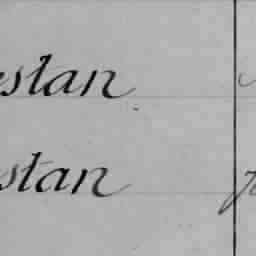 stan
stan